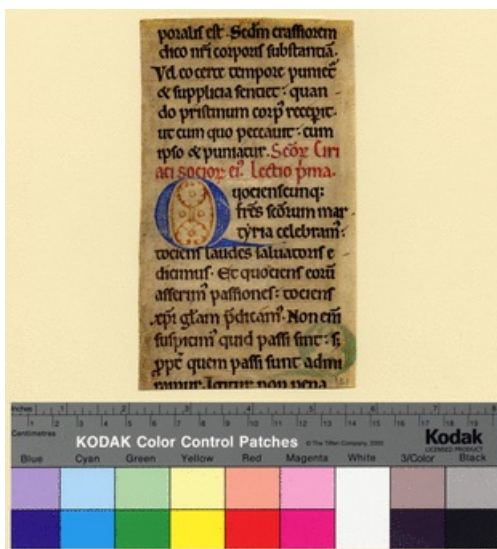 poralis est. Scdm crassiorem
dico nr̃i corporis substantiã.
Vel eo certe tempore puniet᷑
& supplicia sentiet: quan
do pristinum corpꝰ recepit.
ut cum quo peccauit: cum
ipso & puniatur. Scõꝝ Ciri
aci socioꝝ eiꝰ. Lectio p̃ma.
Quociensc̃unq:
fr̃es scõrum mar
tyria celebramꝰ:
tociens laudes saluatoris e
dicimus. Et quociens eorũ
asserimꝰ passiones: tociens
xp̃i gl̃am p̃dicamꝰ. Non em̃
suspicimꝰ quid passi sint: s;
ꝓpt̃ quem passi sunt admi
ramur. Igitur non pena
inches 1 2 3 4 5 6 7
Centimetres 1 2 3 4 5 6 7 8 9 10 11 12 13 14 15 16 17 18 19
KODAK Color Control Patches © The Tiffen Company, 2000 Kodak
LICENSED PRODUCT
Blue Cyan Green Yellow Red Magenta White 3/Color Black